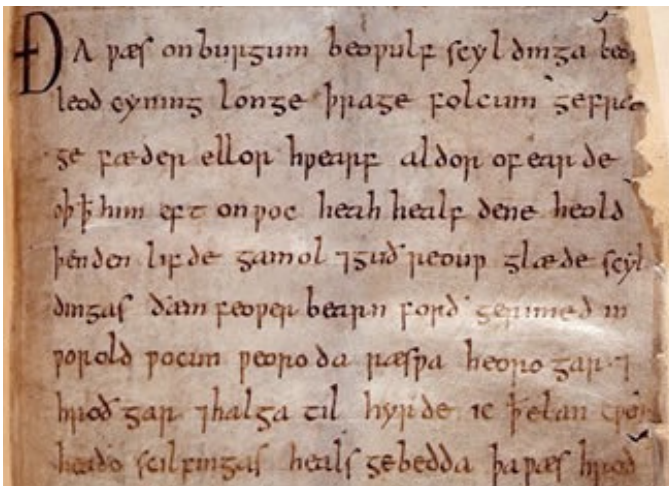 ÐA ƿæs on burgum beoƿulf scyldinga
leod cyning longe þrage folcum gefræ
ge fæder ellor hƿearf aldor of earde
oþ ꝥ him eft onƿoc heah healf dene heold
þenden lifde gamol ⁊ guð reouƿ glæde scyl
dingas ðæm feoƿer bearn forð gerimed in
ƿorold ƿocun ƿeoroda ræsƿa heoro gar ⁊
hroð gar ⁊ halga til hyrde ic ꝥ elan cƿen
heaðo scilfingas heals gebedda þa ƿæs hroð